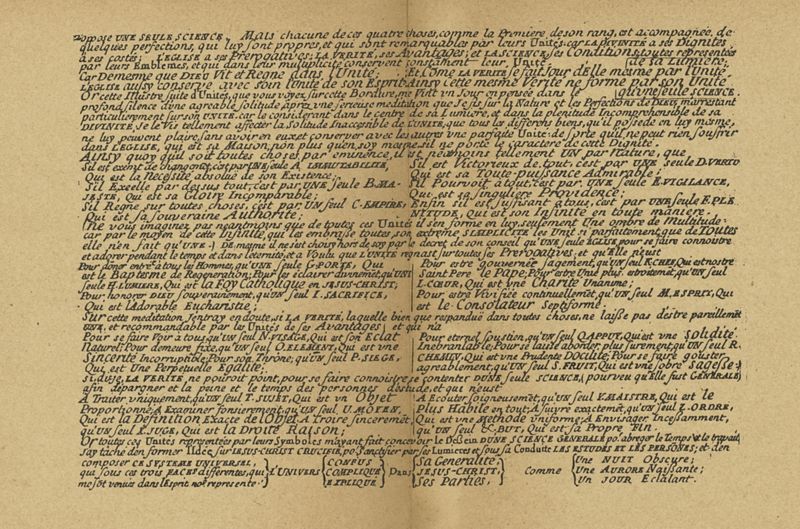 propose UNE SEULE SCIENCE, Mais chacune de ces quatre choses, comme la Premiere de son rang, est accompagnée de
quelques perfections, qui luy sont propres, et qui sont remarquables par leurs Unités. car LA DIVINITÉ a ses Dignités
à ses costés; L'EGLISE a ses Prerogatives; LA VERITÉ, ses Avantages; et LA SCIENCE, ses Conditions, toutes representées
par leurs Emblemes, et qui dans leur multiplicité conservent constament leur Unité. de sa Lumiere,
Car De mesme que DIEU Vit et Regne dans l'Unité; Et COME LA VERITE se fait Jour d'elle mesme par l'Unité
L'EGLISE aussy conserve avec soin l'unité de son Esprit; Ainsy cette mesme Verité ne forme par son Unité
Or cette Illustre suite d'Unités, que vous voyez sur cette Bordure, me Vint un Jour en pensée dans le qu'UNE SEULE SCIENCE.
profond silence d'une agreable solitude apres une serieuse meditation que Je fis sur la Nature et les Perfections de DIEU, m'arrestant
particulierement sur son UNITÉ. car le considerant dans le centre de sa Lumiere, et dans la plenitude Incomprehensible de sa
DIVINITÉ, Je le Vis tellement affecter la Solitude Inaccessible de l'UNITÉ, que tous les differens biens, qu'il possede en luy mesme,
ne luy peuvent plaire, sans avoir en eux et conserver avec les autres Une parfaite Unité. de sorte qu'il ne peut rien souffrir
dans L'EGLISE, qui est sa Maison, non plus qu'en soy mesme, s'il ne porte le caractere de cette Dignité.
AINSY quoy qu'il soit toutes choses par eminence, il est neâmoins tellement UN par Nature, que
S'il est exemt de changement, c'est par UNE seule A. IMMUTABILITÉ, S'il est Victorieux de tout, c'est par UNE seule D. VERTU
Qui est la Necessité absolüe de son Existence; Qui est sa Toute-Puissance Admirable;
S'il Excelle par dessus tout, c'est par UNE seule B. MAJESTE, S'il Pourvoit à tout, c'est par UNE seule E. VIGILANCE,
Qui est sa Gloire Incomparable; Qui est sa singuliere Providence;
S'il Regne sur toutes choses, c'est par UN seul C. EMPIRE; Enfin s'il est suffisant à tous, c'est par UNE seule F. PLE
Qui est sa souveraine Authorité; NITUDE, Qui est son Infinité en toute maniere.
Ne vous imaginez pas neantmoins que de toutes ces Unités il s'en forme en luy seulement Une ombre de Multitude.
car par le moyen de cette Infinité, qui les embrasse toutes, son extrême SIMPLICITÉ les Unit si parfaitement, que de TOUTES
elle n'en fait qu'UNE. De mesme il ne s'est choisy hors de soy par le decret de son conseil qu'UNE seule EGLISE pour se faire connoistre
et adorer pendant le temps et dans l'eternité, et a Voulu que L'UNITÉ regnast sur toutes ses Prerogatives, et qu'elle n'eust
Pour donner entrée à tous les Hommes, qu'UNE seule G. PORTE, Qui Pour estre gouvernée sagement, qu'UN seul K. CHEF, Qui est nostre
est le Baptesme de Regeneration; Pour les éclairer divinement, qu'UNE Saint Pere le Pape; Pour estre Unie plus estroitement, qu'UN seul
seule H. LUMIERE, Qui est la Foy Catholique en JESUS-CHRIST; L. COEUR, Qui est Une Charité Unanime;
Pour honorer DIEU souverainement, qu'UN seul I. SACRIFICE, Pour estre Vivifiée continuellement, qu'UN seul M. ESPRIT, Qui
Qui est l'Adorable Eucharistie; est le Consolateur Septiforme.
Sur cette meditation J'entray en doute, si LA VERITÉ, laquelle bien que respandüe dans toutes choses, ne laisse pas d'estre pareillement
UNE, et recommandable par les Unités de ses Avantages; et qui n'a
Pour se faire Voir à tous, qu'UN seul N. VISAGE, Qui est son Eclat Pour eternel soustien, qu'UN seul Q. APPUY, Qui est Vne Solidité
Naturel; Pour demeure fixe, qu'UN seul O. ELEMENT, Qui est vne Inebranlable; Pour se laisse aborder plus surement, qu'UN seul R.
Sincerité Incorruptible; Pour son Throne, qu'UN seul P. SIEGE, CHEMIN, Qui est Vne Prudente Docilité; Pour se faire gouster
Qui est Une Perpetuelle Egalité; agreablement, qu'UN seul S. FRUIT, Qui est Vne sobre Sagesse;
si, dis je, LA VERITE ne pouvoit point, pour se faire connoistre, se contenter D'UNE seule SCIENCE, (pourveu qu'elle fust GENERALE)
afin d'épargner et la peine et le temps des personnes d'estude, et qui n'eust
A Traiter Vniquement, qu'UN seul T. SUJET, Qui est vn Objet A Ecouter soigneusement, qu'UN seul Y. MAISTRE, Qui est le
Proportionné; A Examiner foncierement, qu'UN seul U. MOYEN, Plus Habile en tout; A suivre exactemēt, qu'UN seul Z. ORDRE,
Qui est la Definition Exacte de l'Objet; A Croire sincerement, Qui est vne Methode Uniforme; A Envisager Incessamment,
qu'UN seul X. JUGE, Qui est la Droite Raison; qu'UN seul &. BUT, Qui est sa Propre Fin.
Or toutes ces Unités representées par leurs Symboles m'ayant fait concevoir le Dessein D'UNE SCIENCE GENERALE po.r abreger le Temps et le travail,
J'ay taché d'en former l'Idée, sur JESUS-CHRIST CRUCIFIÉ, po.r Sanctifier par ses Lumieres et sous sa Conduite LES ESTUDES ET LES PERSONES; et d'en
composer CE SYSTEME UNIVERSEL, CONFUS Sa Generalité, Une NUIT Obscure;
qui sous ces trois FACES differentes, qui L'UNIVERS COMPLIQUÉ Dans JESUS-CHRIST, Comme Une AURORE Naissante;
me sōt venües dans l'Esprit, no.s represente EXPLIQUÉ Ses Parties, Un JOUR Eclatant.